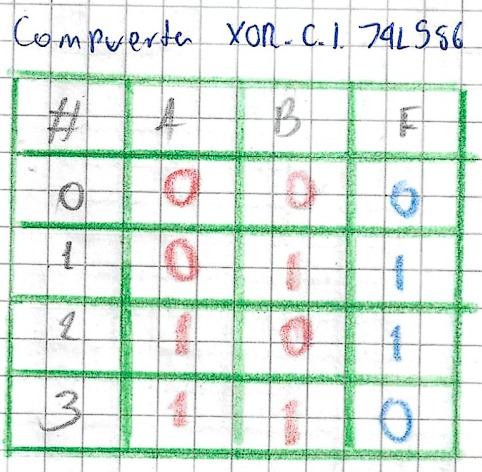 Compuerta XOR. C.I. 74LS86
# A B F
0 0 0 0
1 0 1 1
2 1 0 1
3 1 1 0